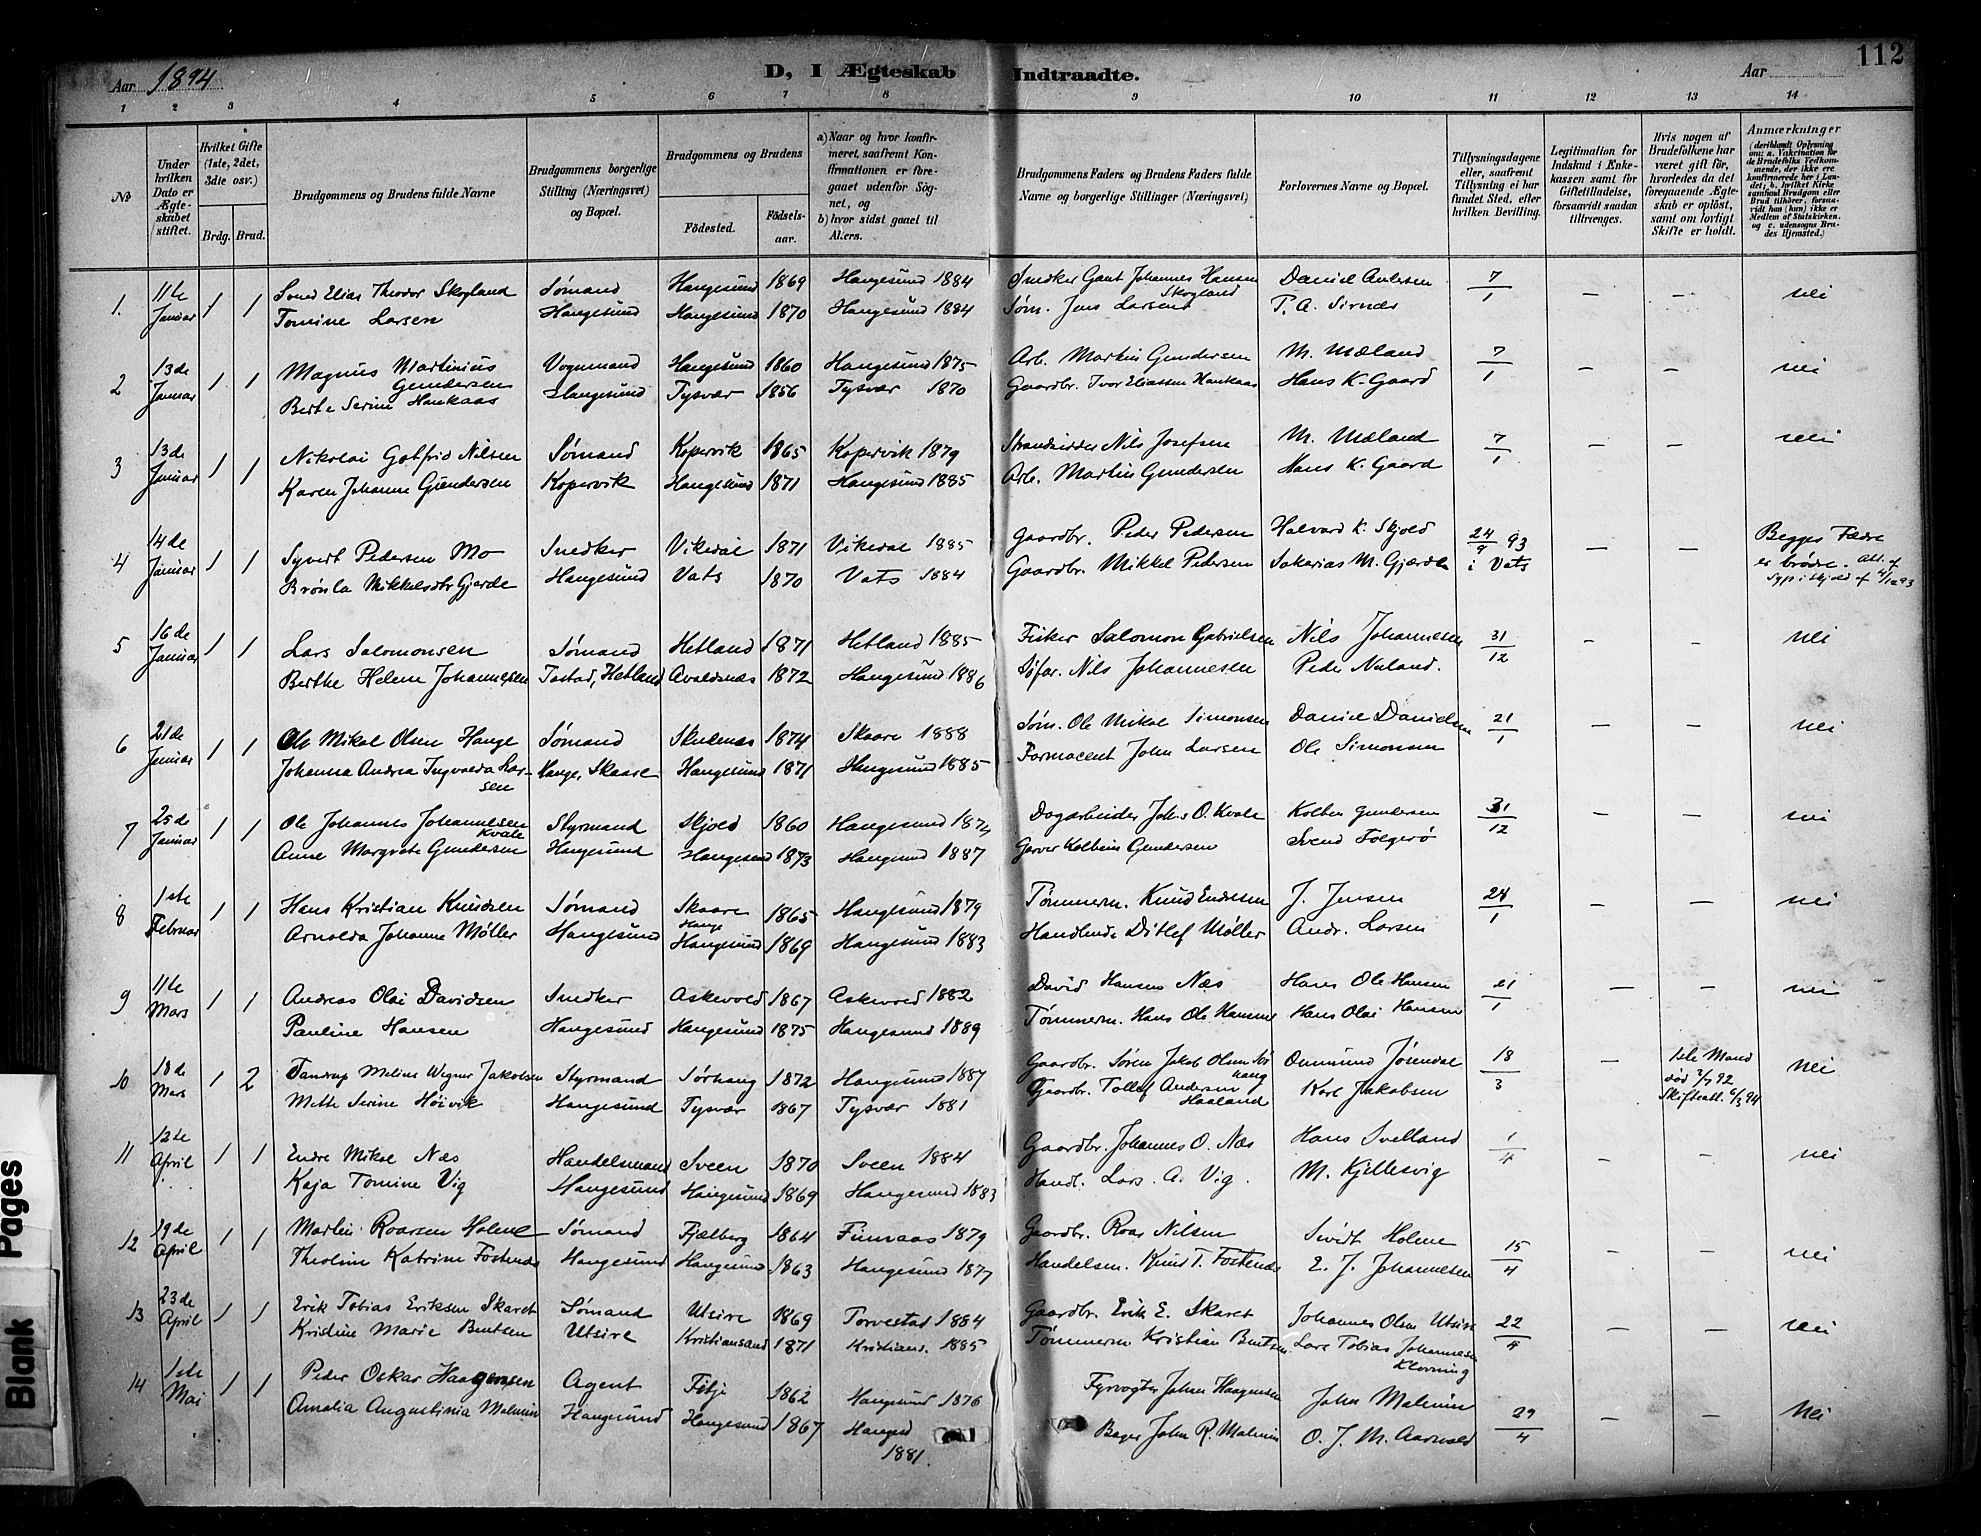 112
Aar 1894 D, I Ægteskab Indtraadte. Aar
1 2 3 4 5 6 7 8 9 10 11 12 13 14
No
Under hvilken Dato er Ægteskabet stiftet.
Hvilket Gifte (1ste, 2det, 3die osv.)
Brdg. Brud.
Brudgommens og Brudens fulde Navne
Brudgommens borgerlige Stilling (Næringsvei) og Bopæl.
Brudgommens og Brudens
Födested. Födselsaar.
a) Naar og hvor konfirmeret, saafremt Konfirmationen er foregaaet udenfor Sögnet, og
b) hvor sidst gaaet til Alters.
Brudgommens Faders og Brudens Faders fulde Navne og borgerlige Stillinger (Næringsvei)
Forlovernes Navne og Bopæl.
Tillysningsdagene eller, saafremt Tillysning ei har fundet Sted, efter hvilken Bevilling.
Legitimation for Indskud i Enkekassen samt for Giftetilladelse, forsaavidt saadan tiltrænges.
Hvis nogen af Brudefolkene har været gift för, hvorledes da det foregaaende Ægteskab er oplöst, samt om lovligt Skifte er holdt.
Anmærkninger (deriblandt Oplysning om: a. Vakcination för de Brudefolks Vedkommende, der ikke ere konfirmerede her i Landet; b. hvilket Kirkesamfund Brudgom eller Brud tilhörer, forsaavidt han (hun) ikke er Medlem af Statskirken, og c. udensogns Brudes Hjemsted.)
1. 11te Januar 1 1 Svend Elias Theodor Skogland Sømand Haugesund 1869 Haugesund 1884 Snedker Gaut Johannes Hansen Skogland Daniel Andersen 7/1 – – nei
Tomine Larsen Haugesund Haugesund 1870 Haugesund 1884 Søm. Jens Larsen T. A. Sirnær
2 13de Januar 1 1 Magnus Martinius Gundersen Vognmand Haugesund 1860 Haugesund 1875 Arb. Martin Gundersen M. Mæland 7/1 – – nei
Berte Serine Haukaas Haugesund Tysvær 1856 Tysvær 1870 Gaardbr. Ivar Eliassen Haukaas Hans K. Gaard
3 13de Januar 1 1 Nikolai Gotfrid Nilsen Sømand Kopervik 1865 Kopervik 1879 Strandsidder Nils Josefsen M. Mæland 7/1 – – nei
Karen Johanne Gundersen Kopervik Haugesund 1871 Haugesund 1885 Arb. Martin Gundersen Hans K. Gaard
4 14de Januar 1 1 Syvert Pedersen Mo Snedker Vikedal 1871 Vikedal 1885 Gaardbr. Peder Pedersen Halvard K. Skjold 24/9 93 i Vats – – Begges Fædre er brødre. Att. af
Brønla Mikkelsdtr Gjerde Haugesund Vats 1870 Vats 1884 Gaardbr. Mikkel Pedersen Sakarias M. Gjærde
5 16de Januar 1 1 Lars Salomonsen Sømand Hetland 1871 Hetland 1885 Fisker Salomon Gabrielsen Nils Johannesen 31/12 – – nei
Berthe Helene Johannesen Tastad, Hetland Avaldsnæs 1872 Haugesund 1886 Søfar. Nils Johannesen Peder Neland.
6 21de Januar 1 1 Ole Mikal Olsen Hauge Sømand Skudenæs 1874 Skaare 1888 Søm. Ole Mikal Simonsen Daniel Danielsen 21/1 – – nei
Johanna Andrea Ingvalda Larsen Hauge, Skaare Haugesund 1871 Haugesund 1885 Farmaceut John Larsen Ole Simonsen
7 25de Januar 1 1 Ole Johannes Johannessen Kvale Styrmand Skjold 1860 Haugesund 1874 Dagarbeider Johs O. Kvale Kolben Gundersen 31/12 – – nei
Anne Margrete Gundersen Haugesund Haugesund 1873 Haugesund 1887 Garver Kolbein Gundersen Svend Følgerø
8 1ste Februar 1 1 Hans Kristian Knudsen Sømand Skaare Hauge 1865 Haugesund 1879 Tømmerm. Knud Endresen J. Jensen 28/1 – – nei
Arnolda Johanne Møller Haugesund Haugesund 1869 Haugesund 1883 Handlende Ditlef Møller Andr. Larsen
9 11te Mars 1 1 Andreas Olai Davidsen Snedker Askevold 1867 Askevold 1882 David Hansen Næs Hans Ole Hansen 21/1 – – nei
Pauline Hansen Haugesund Haugesund 1875 Haugesund 1889 Tømmerm. Hans Ole Hansen Hans Olai Hansen
10 18de Mars 1 2 Tandrup Melius Wegner Jakobsen Styrmand Sørhaug 1872 Haugesund 1887 Gaardbr. Søren Jakob Olsen Sørhaug Ommund Jøsendal 18/3 – 1ste Mand død 2/7 92 Skifteatt. 6/3 94 nei
Mette Serine Höivik Haugesund Tysvær 1867 Tysvær 1881 Gaardbr. Tollef Andersen Haaland Karl Jakobsen
11 12te April 1 1 Endre Mikal Næs Handelsmand Sveen 1870 Sveen 1884 Gaardbr. Johannes O. Næs Hans Svelland 1/4 – – nei
Kaja Tomine Vig Haugesund Haugesund 1869 Haugesund 1883 Handl. Lars A. Vig. M. Kjellesvig
12 19de April 1 1 Martin Roarsen Holme Sømand Fjælberg 1864 Finnaas 1879 Gaardbr. Roar Nilsen Sivert Holme 15/4 – – nei
Theoline Katrine Fostenæs Haugesund Haugesund 1863 Haugesund 1877 Handelsm. Knud T. Fostenæs E. J. Johannesen
13 23de April 1 1 Erik Tobias Eriksen Skaret Sømand Utsire 1869 Torvestad 1884 Gaardbr. Erik E. Skaret Johannes Olsen Utsire 22/4 – – nei
Kristine Marie Bentsen Utsire Kristiansand 1871 Kristians. 1885 Tømmerm Kristian Bentsen Lars Tobias Johannesen Klovning
14 1ste Mai 1 1 Peder Oskar Haagensen Agent Fitje 1862 Haugesund 1876 Fyrvogter Johan Haagensen John Malmin 29/4 – – nei
Amalia Augustinia Malmin Haugesund Haugesund 1867 Haugesd 1881. Bager John R. Malmin O. J. M. Aarvold
Blank Pages